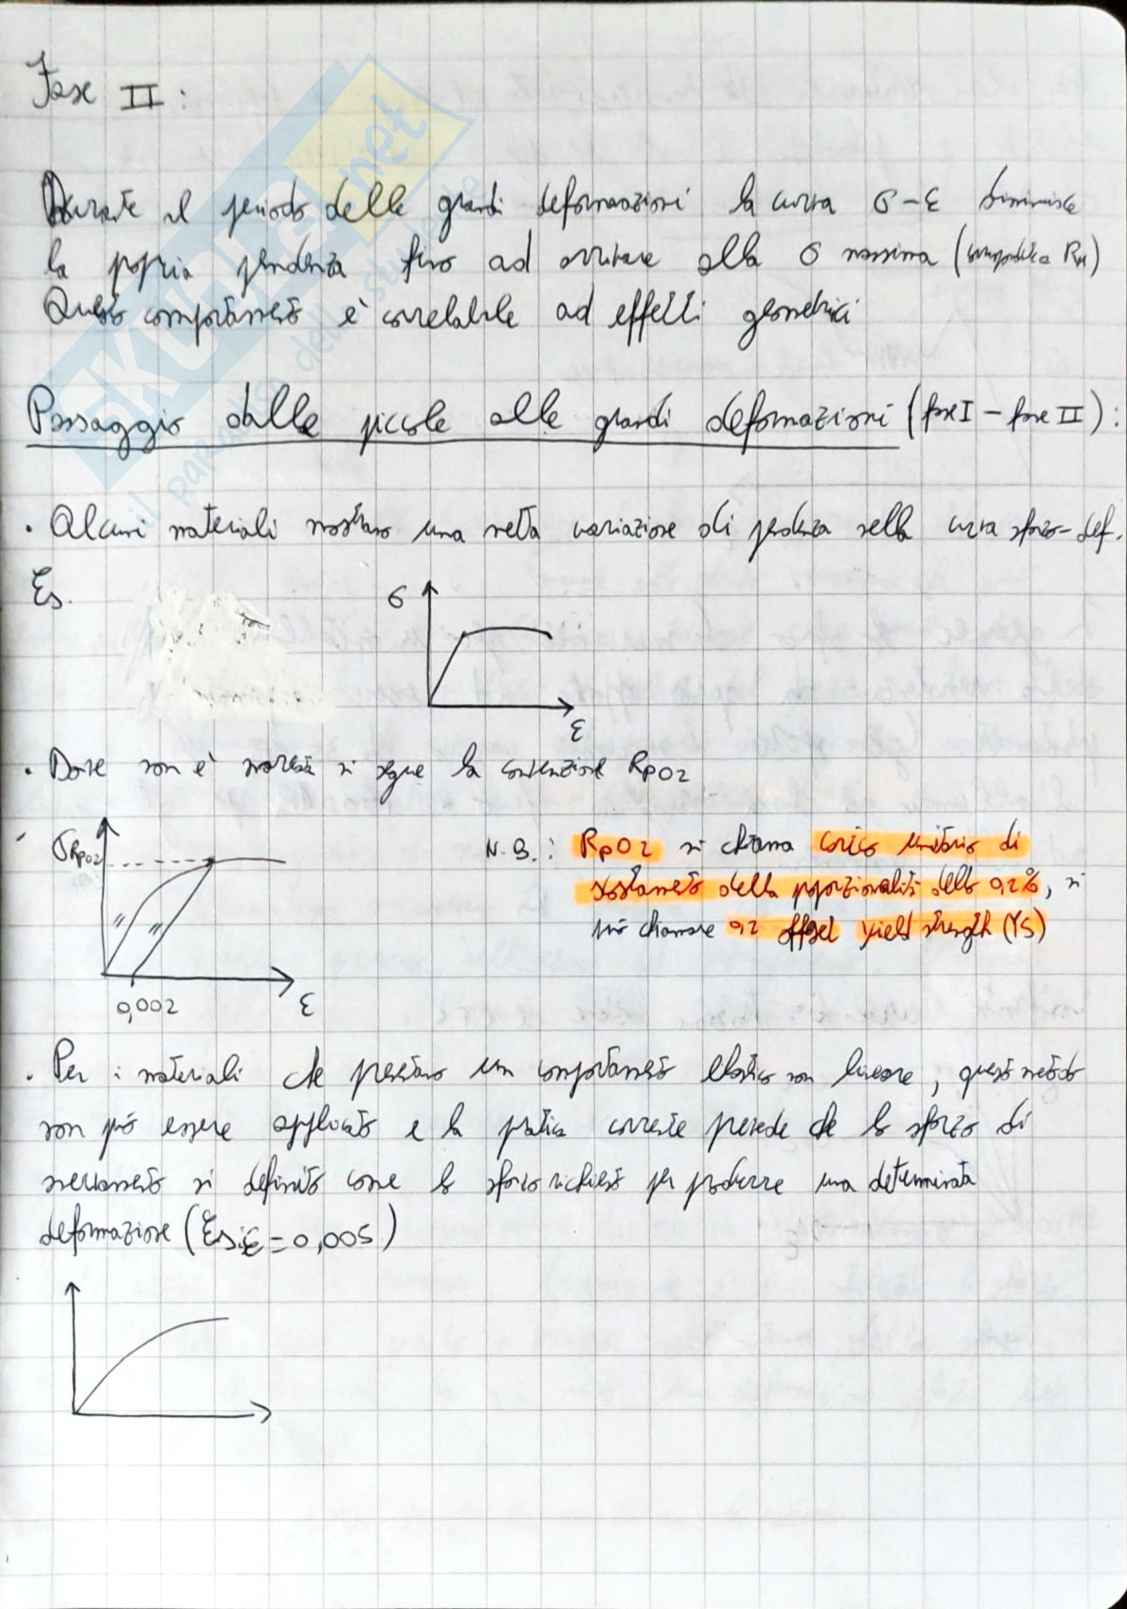 Fase II :
Durante il periodo delle grandi deformazioni la curva σ-ε diminuisce
la propria pendenza fino ad arrivare alla σ massima (corrispondente a Rm)
Questo comportamento è correlabile ad effetti geometrici
Passaggio dalle piccole alle grandi deformazioni (fase I - fase II) :
. Alcuni materiali mostrano una netta variazione di pendenza nella curva sforzo-def.
Es.
σ
ε
. Dove non è marcata si segue la convenzione Rp02
σRp02
0,002
ε
N.B. : Rp02 si chiama carico unitario di
scostamento dalla proporzionalità dello 0,2%, si
può chiamare 0,2 offset yield strength (YS)
. Per i materiali che presentano un comportamento elastico non lineare, questo metodo
non può essere applicato e la pratica corrente prevede che lo sforzo di
snervamento si definito come lo sforzo richiesto per produrre una determinata
deformazione (Es: ε = 0,005)
SKUOLA.net
il paradiso dello studente